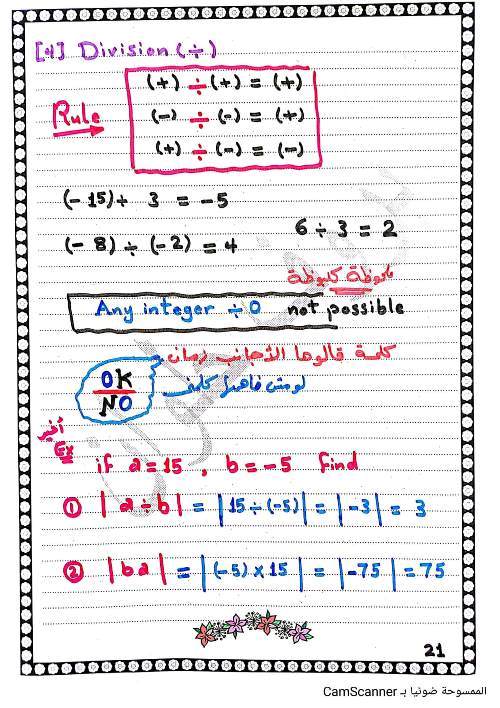 [4] Division (÷)
(+) ÷ (+) = (+)
Rule
(-) ÷ (-) = (+)
(+) ÷ (-) = (-)
(- 15) ÷ 3 = -5
6 ÷ 3 = 2
(- 8) ÷ (-2) = 4
ملحوظة كلبوظة
Any integer ÷ 0 not possible
كلمة قالوها الأجانب زمان
لو مش فاهمها
OK
NO
أخير
Ex
if a = 15 , b = -5 find
① |a ÷ b| = |15 ÷ (-5)| = |-3| = 3
② |ba| = |(-5) × 15| = |-75| = 75
21
الممسوحة ضوئيا بـ CamScanner